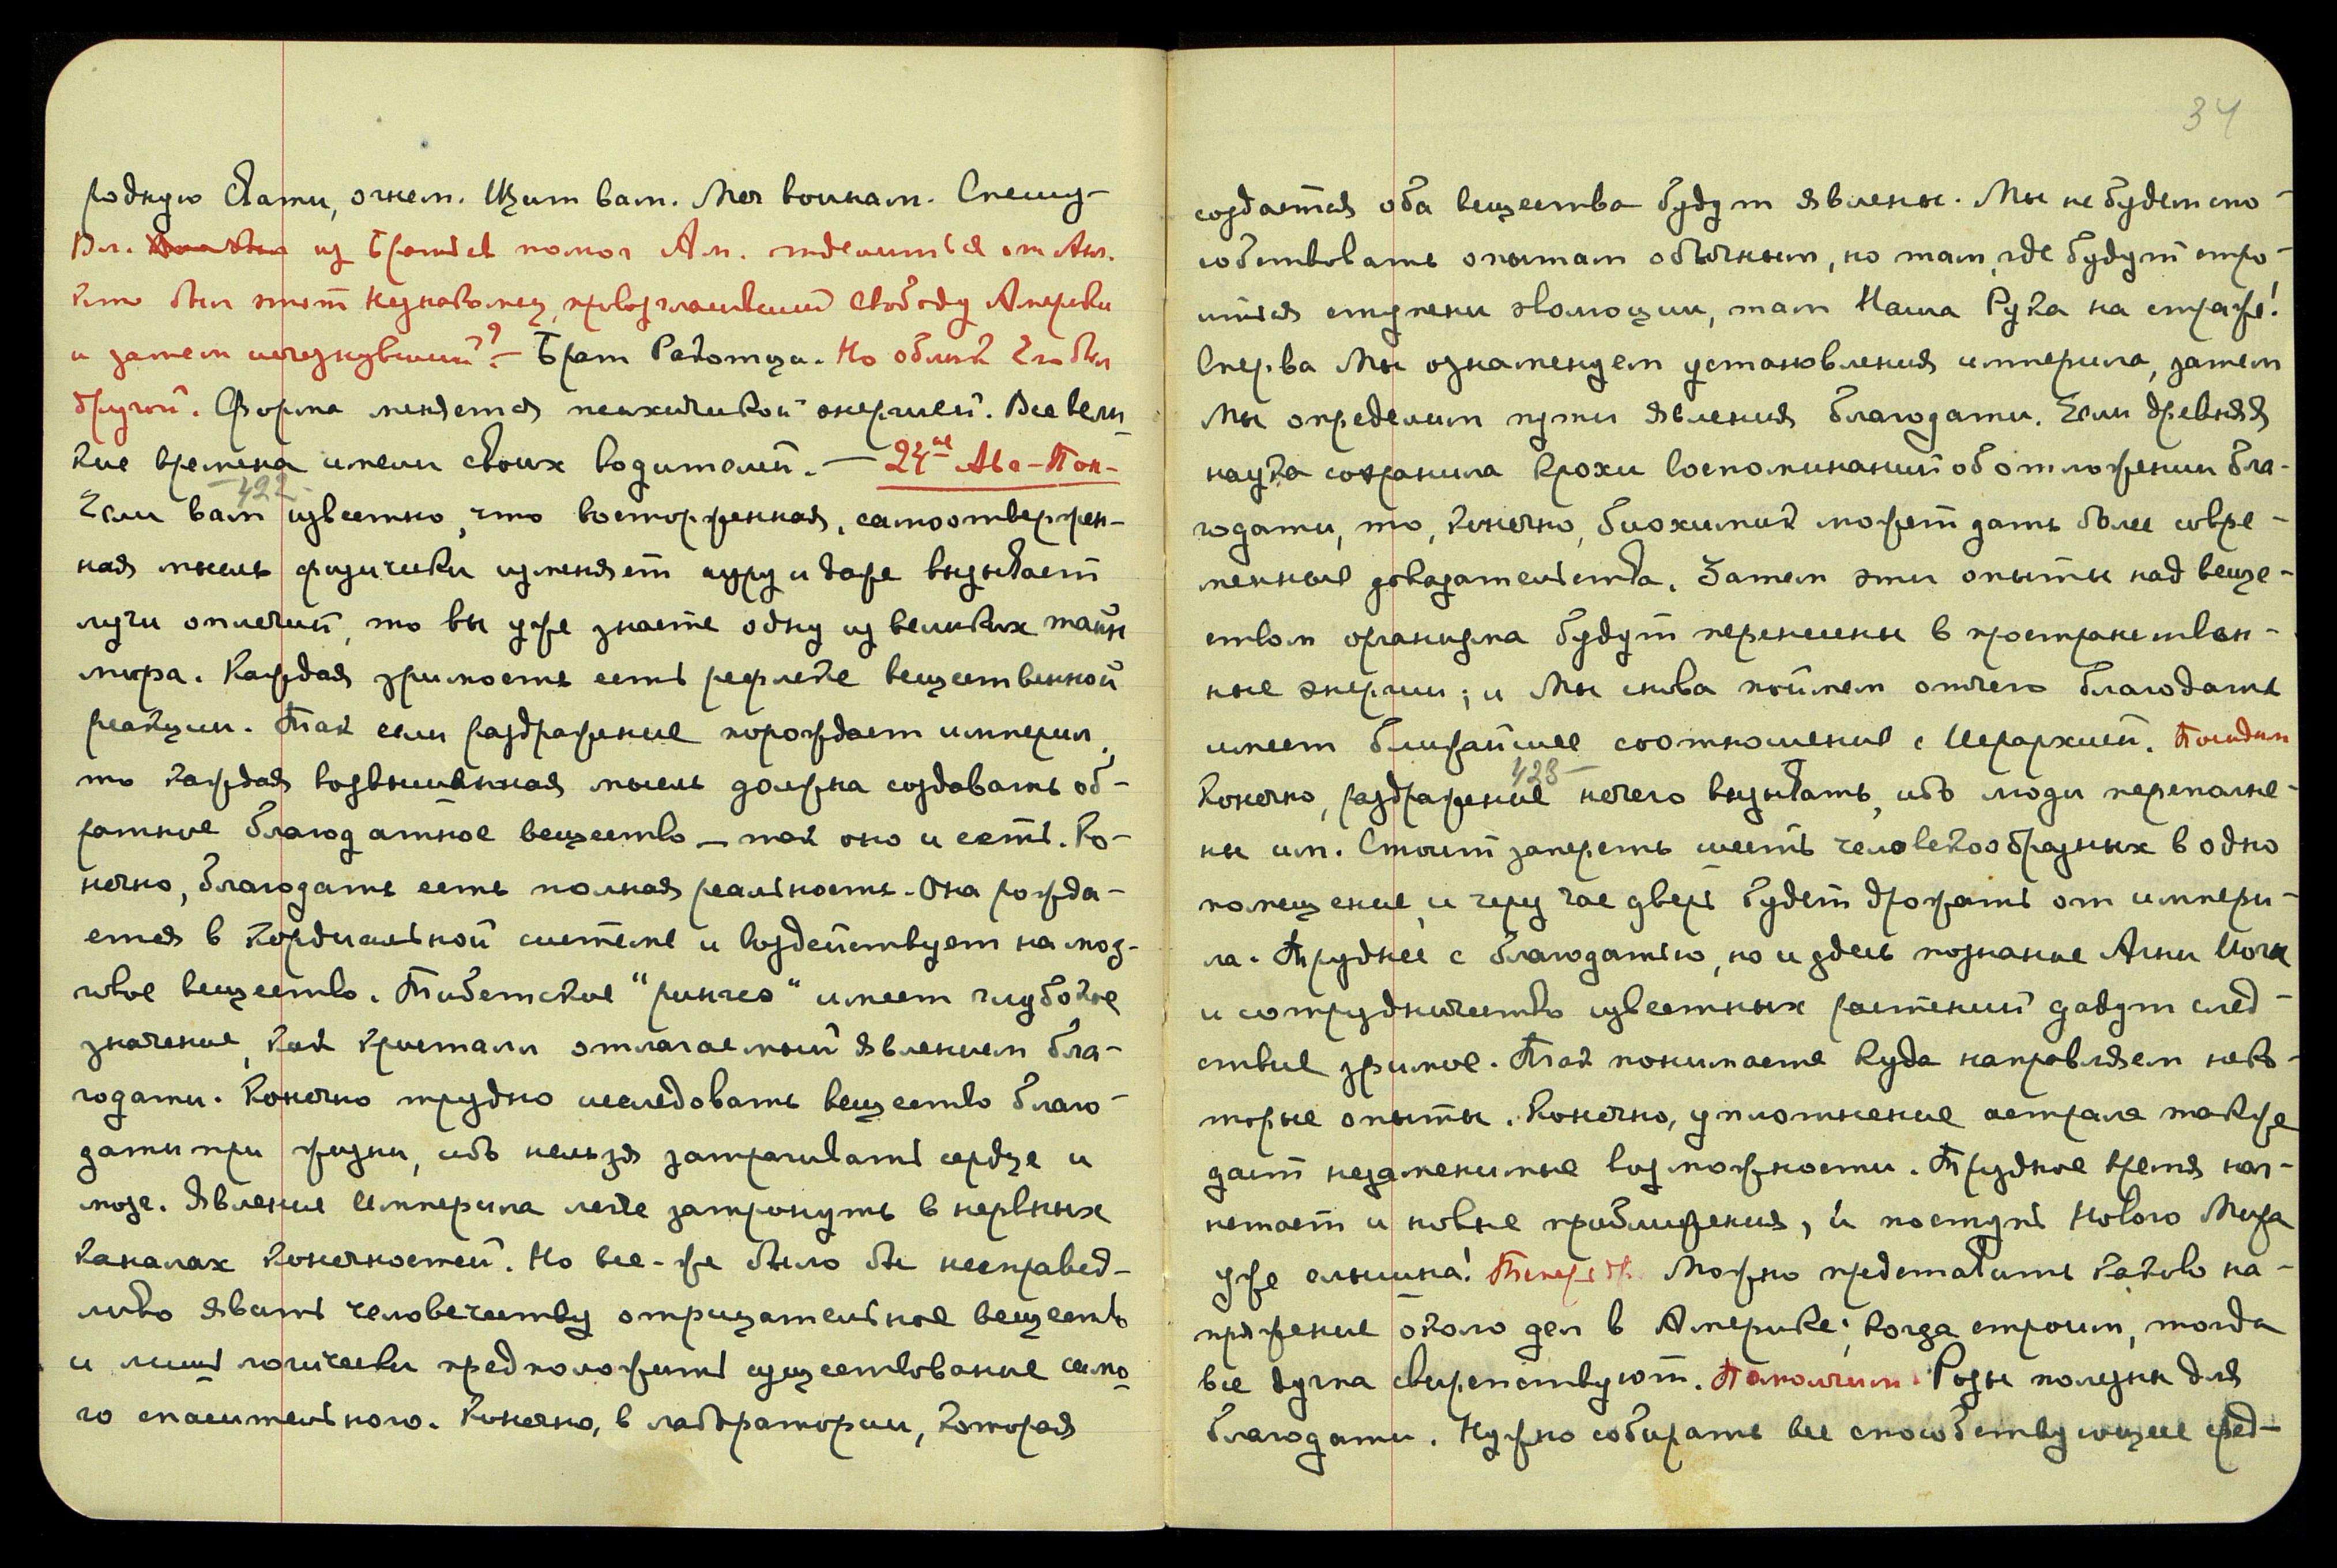 родную Свати, огнем. Щит вам. Меч воинам. Спешу—
Вл. из Братьев помог Ам. отделиться от Анг.
Кто был этот Незнакомец, провозгласивший Свободу Америки
и затем исчезнувший?? — Брат Ракотци. Но облик Его был
другой. Форма меняется психической энергией. Все вели-
кие времена имели своих водителей. — 24ое Авг-Пон-
422-
Если вам известно, что восторженная, самоотвержен-
ная мысль физически изменяет ауру и даже вызывает
лучи оплечий, то вы уже знаете одну из великих тайн
мира. Каждая зримость есть рефлекс вещественной
реакции. Так если раздражение порождает империл,
то каждая возвышенная мысль должна создавать об-
ратное благодатное вещество — так оно и есть. Ко-
нечно, благодать есть полная реальность. Она рожда-
ется в кордиальной системе и воздействует на моз-
говое вещество. Тибетское "рингсэ" имеет глубокое
значение, как кристалл отлагаемый явлением бла-
годати. Конечно трудно исследовать вещество благо-
дати при жизни, ибо нельзя затрагивать сердце и
мозг. Явление Империла легче затронуть в нервных
каналах конечностей. Но все-же было бы несправед-
ливо явить человечеству отрицательное вещество
и лишь логически предположить существование само-
го спасительного. Конечно, в лаборатории, которая
34
создается оба вещества будут явлены. Мы не будем спо-
собствовать опытам обычным, но там, где будут стро-
иться ступени эволюции, там Наша Рука на страже!
Сперва Мы ознаменуем установления империла, затем
Мы определим пути явления благодати. Если древняя
наука сохранила крохи воспоминаний об отложении бла-
годати, то, конечно, биохимик может дать более совре-
менные доказательства. Затем эти опыты над веще-
ством организма будут перенесены в пространствен-
ные энергии; и Мы снова поймем отчего благодать
имеет ближайшее соотношение с Иерархией. Посидим
423—
Конечно, раздражение нечего вызывать, ибо люди переполне-
ны им. Стоит запереть шесть человекообразных в одно
помещение, и через час дверь будет дрожать от импери-
ла. Труднее с благодатью, но и здесь познание Агни Йоги
и сотрудничество известных растений дадут след-
ствие зримое. Так понимаете куда направляем неко-
торые опыты. Конечно, уплотнение астрала также
дает незаменимые возможности. Трудное время наг-
нетает и новые приближения, и поступь Нового Мира
уже слышна! Теперь др. Можно представить каково на-
пряжение около дел в Америке; когда строим, тогда
все дугпа свирепствуют. Помолчим. Розы полезны для
благодати. Нужно собирать все способствующее сред-